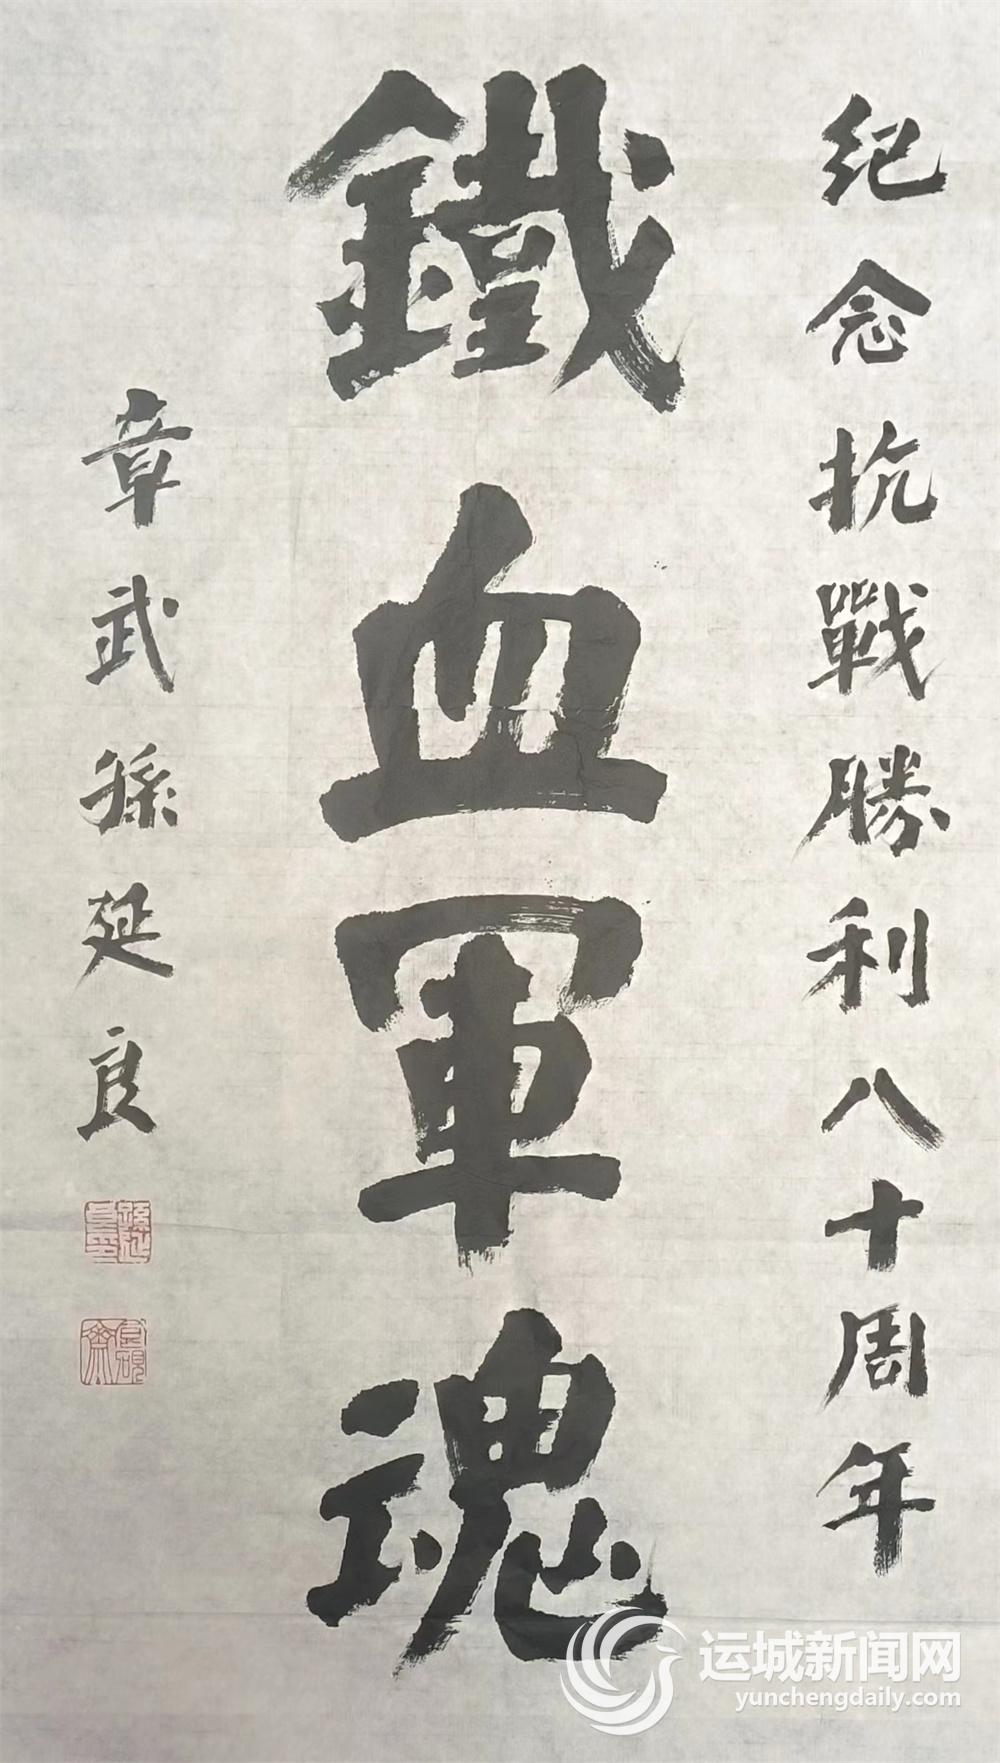 紀念抗戰勝利八十周年
鐵血軍魂
章武孫延良
运城新闻网
yunchengdaily.com